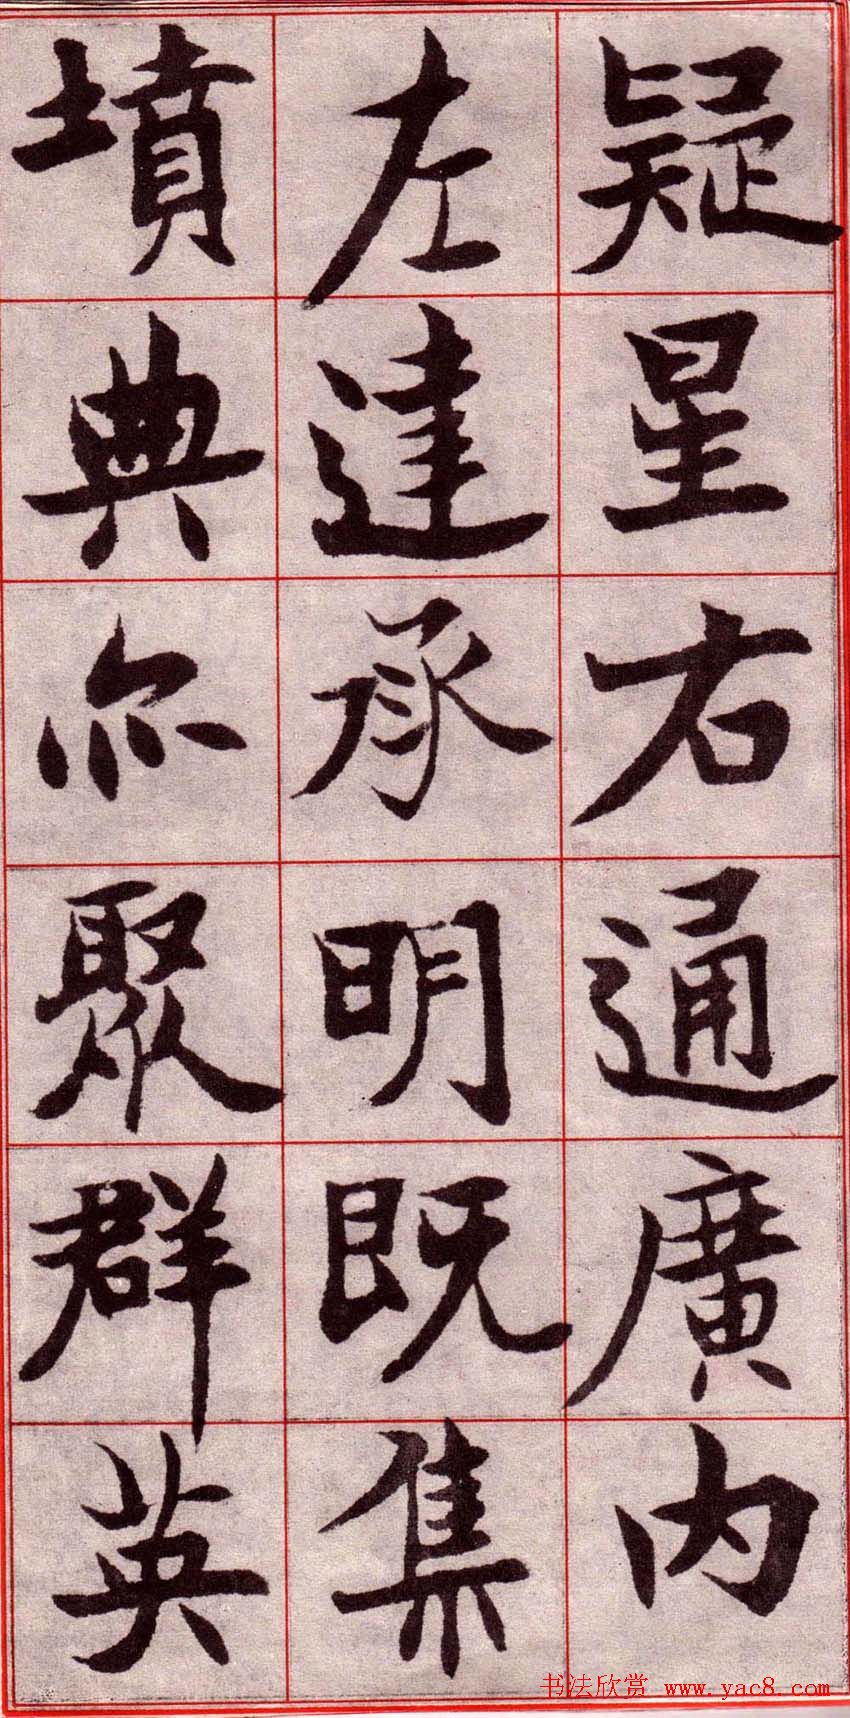 疑星右通廣内
左達承明既集
墳典亦聚群英
书法欣赏 www.yac8.com